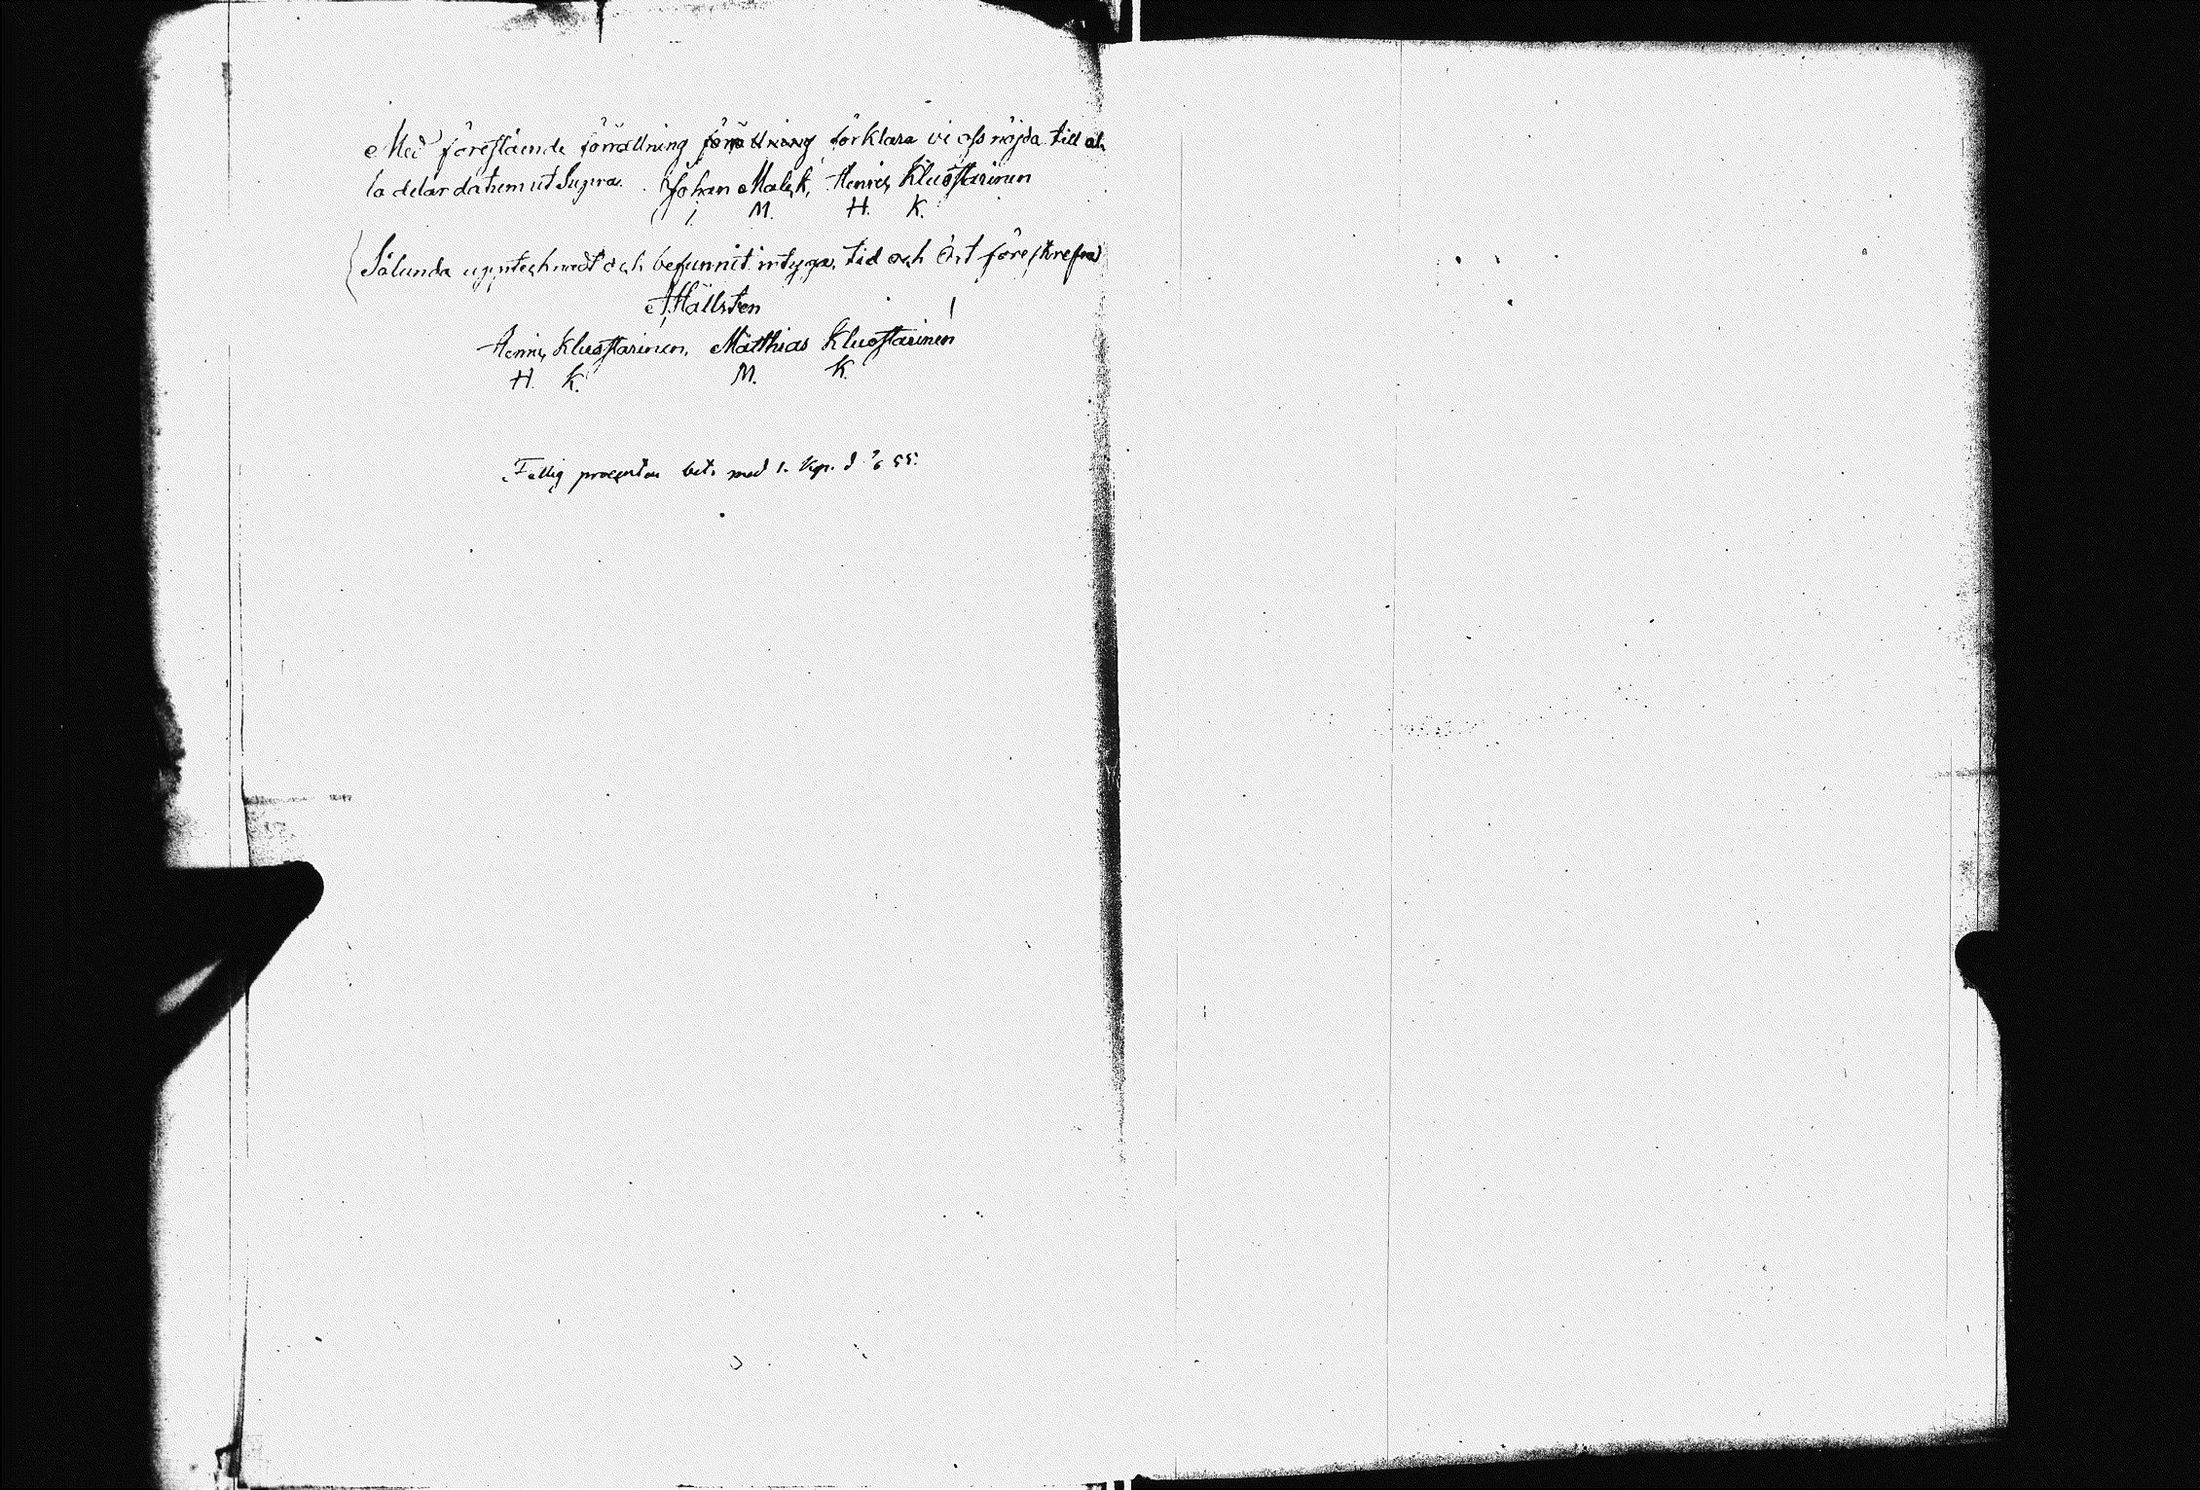 Med förestående förrättning förrättning förklara vi oss nöjda till al-
la delar datum ut Supra. Johan Malek, Henric Kluostarinen
J. M. H. K.
Sålunda upptecknadt och befunnit intyga, tid och Ort föreskrefne
A Hällsten
Henric Kluostarinen, Matthias Kluostarinen
H. K. M. K.
Fattig procenten bet. med 1. Kop. d 7/6 55.